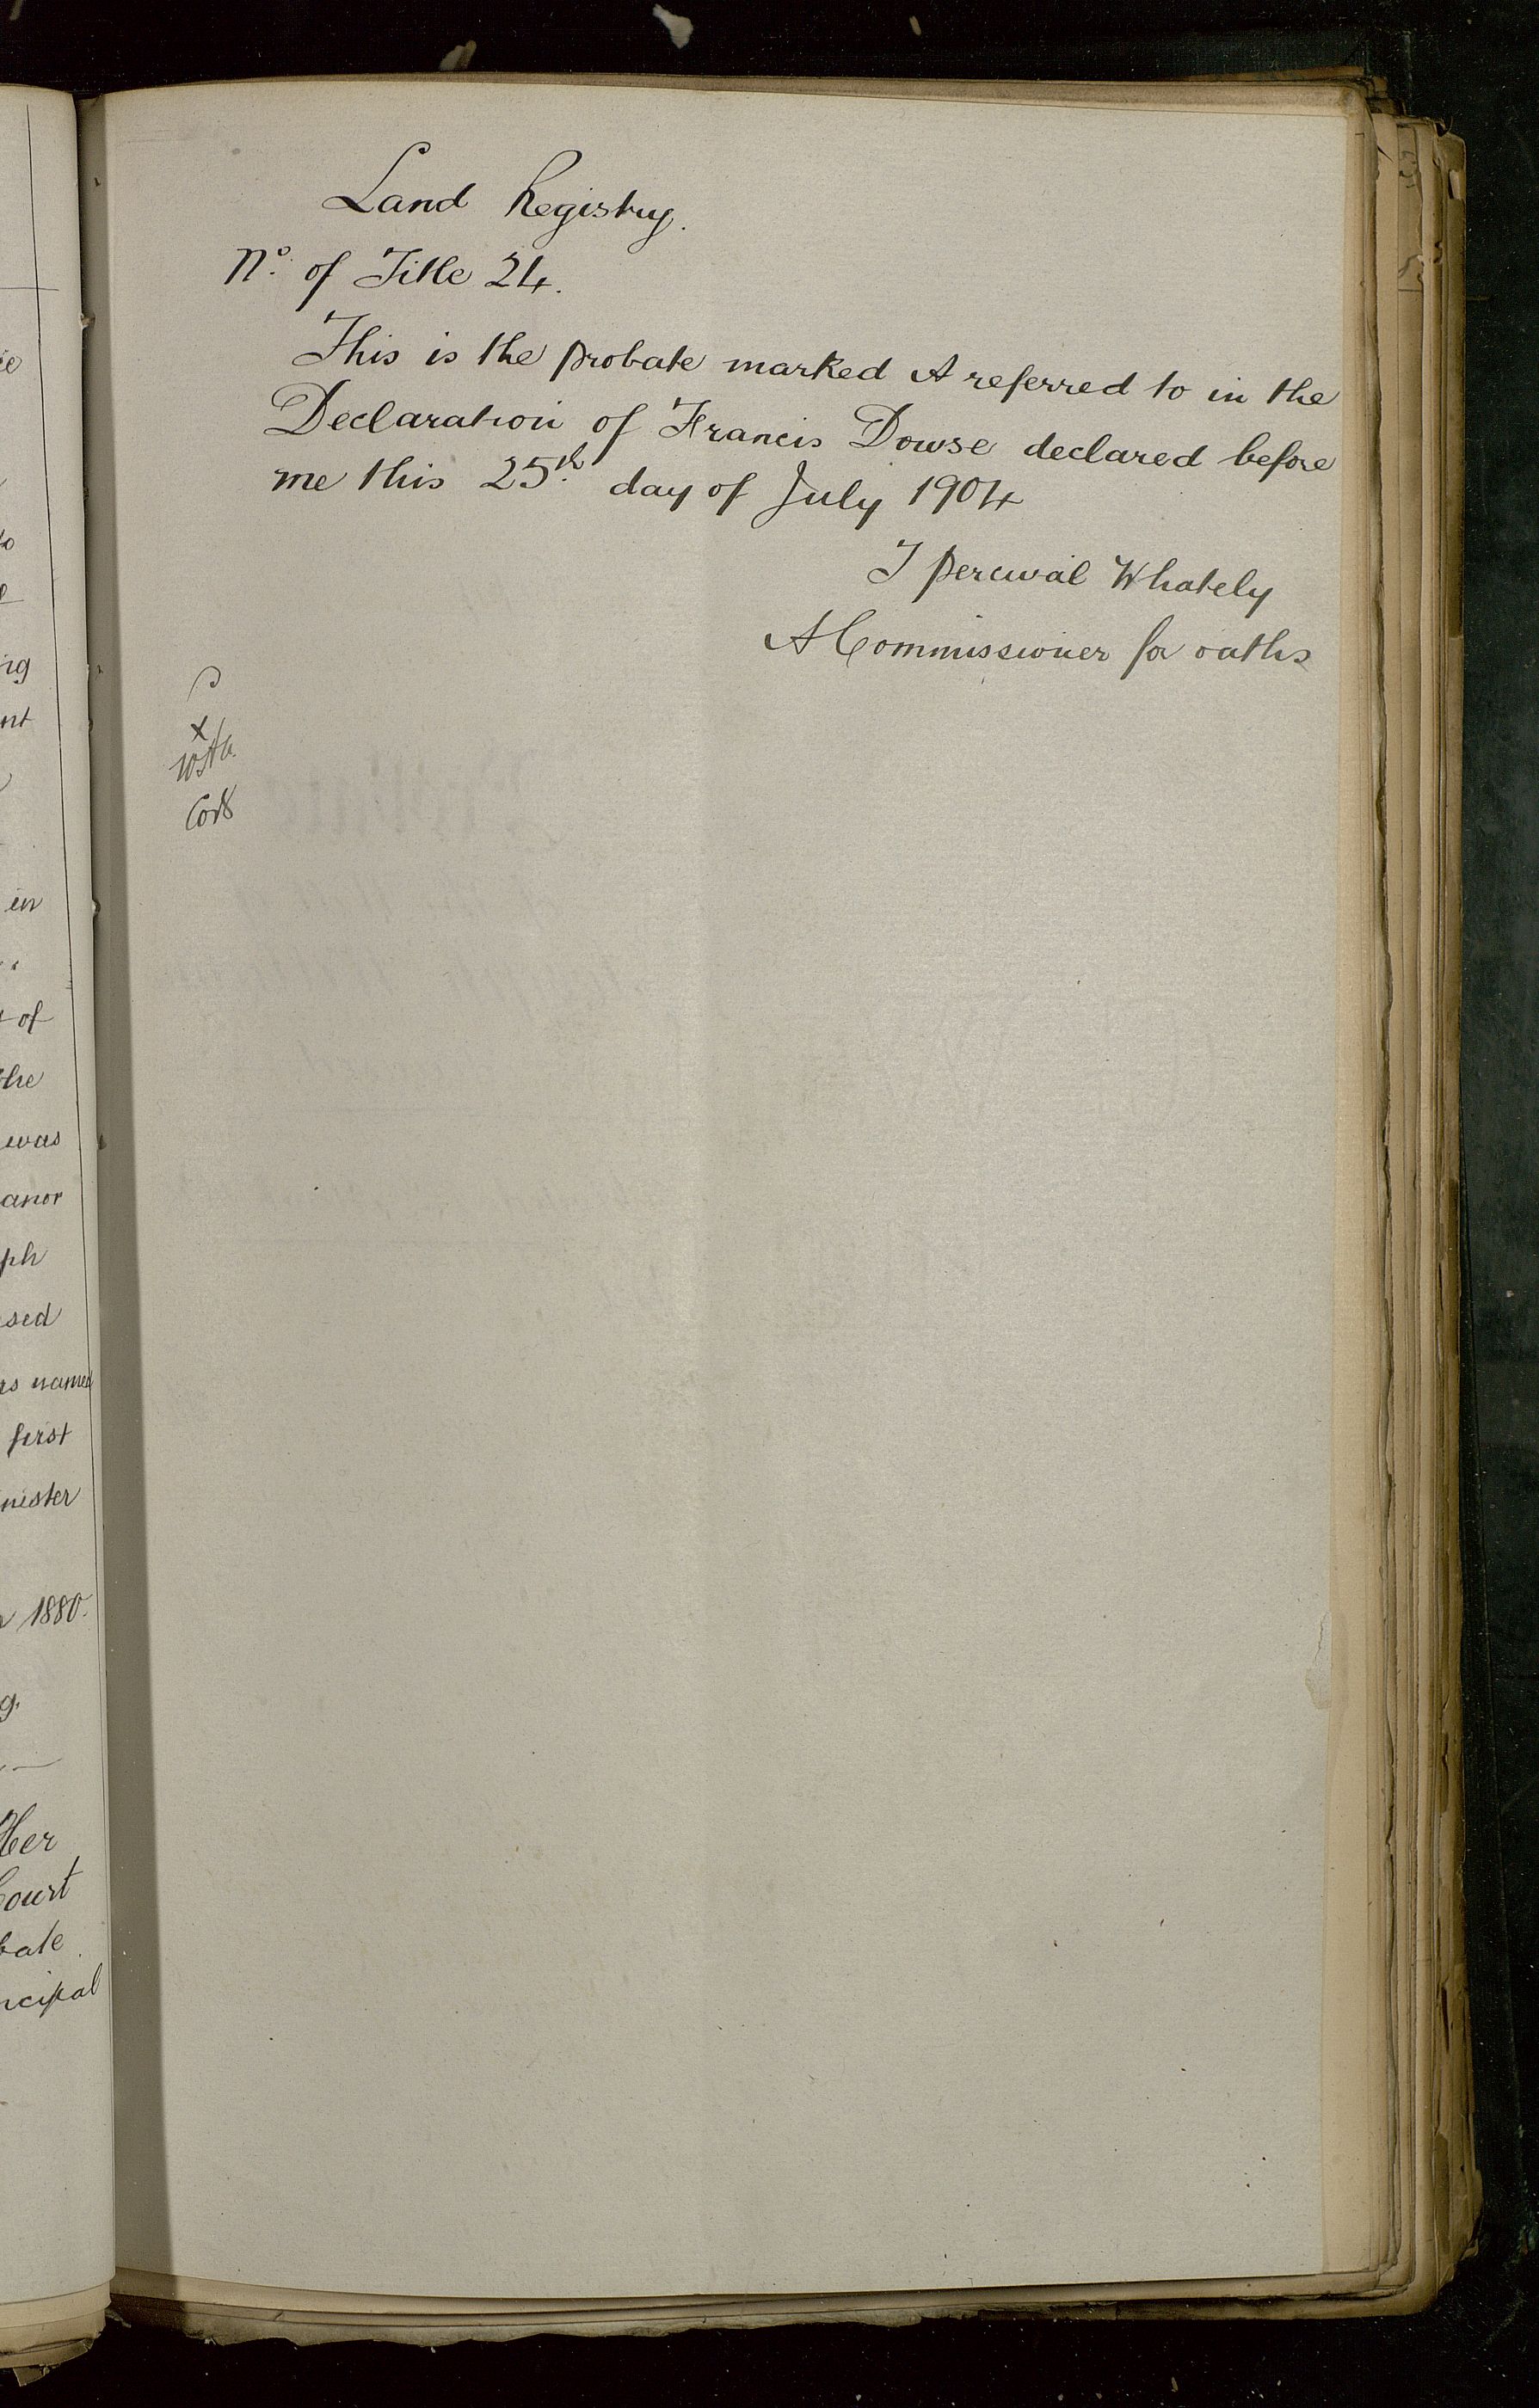 ng
nt
in
of
the
was
anor
ph
sed
rs named
first
nister
1880.
g.
Her
Court
bate
ncipal
Land Registry.
No. of Title 24.
This is the probate marked A referred to in the
Declaration of Francis Dowse declared before
me this 25th. day of July 1904
J Percival Whately
A Commissioner for oaths
x